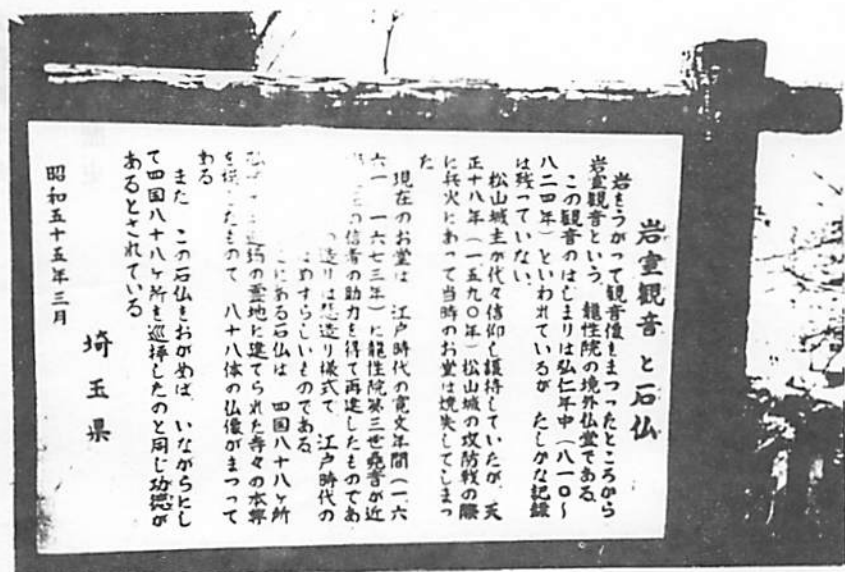 岩室観音と石仏
岩をうがって観音像をまつったところから
岩室観音という。龍性院の境外仏堂である。
この観音のはじまりは弘仁年中(八一〇〜
八二四年)といわれているが たしかな記録
は残っていない。
松山城主が代々信仰し護持していたが、天
正十八年(一五九〇年)松山城の攻防戦の際
に兵火にあって当時のお堂は焼失してしまっ
た
現在のお堂は 江戸時代の寛文年間(一六
六一 一六七三年)に龍性院第三世堯音が近
の信者の助力を得て再建したものであ
造りは 造り様式で 江戸時代の
めずらしいものである。
にある石仏は 四国八十八ヶ所
の霊地に建てられた寺々の本尊
を したもので 八十八体の仏像がまつって
ある
また この石仏をおがめば、いながらにし
て四国八十八ヶ所を巡拝したのと同じ功徳が
あるとされている
昭和五十五年三月
埼玉県